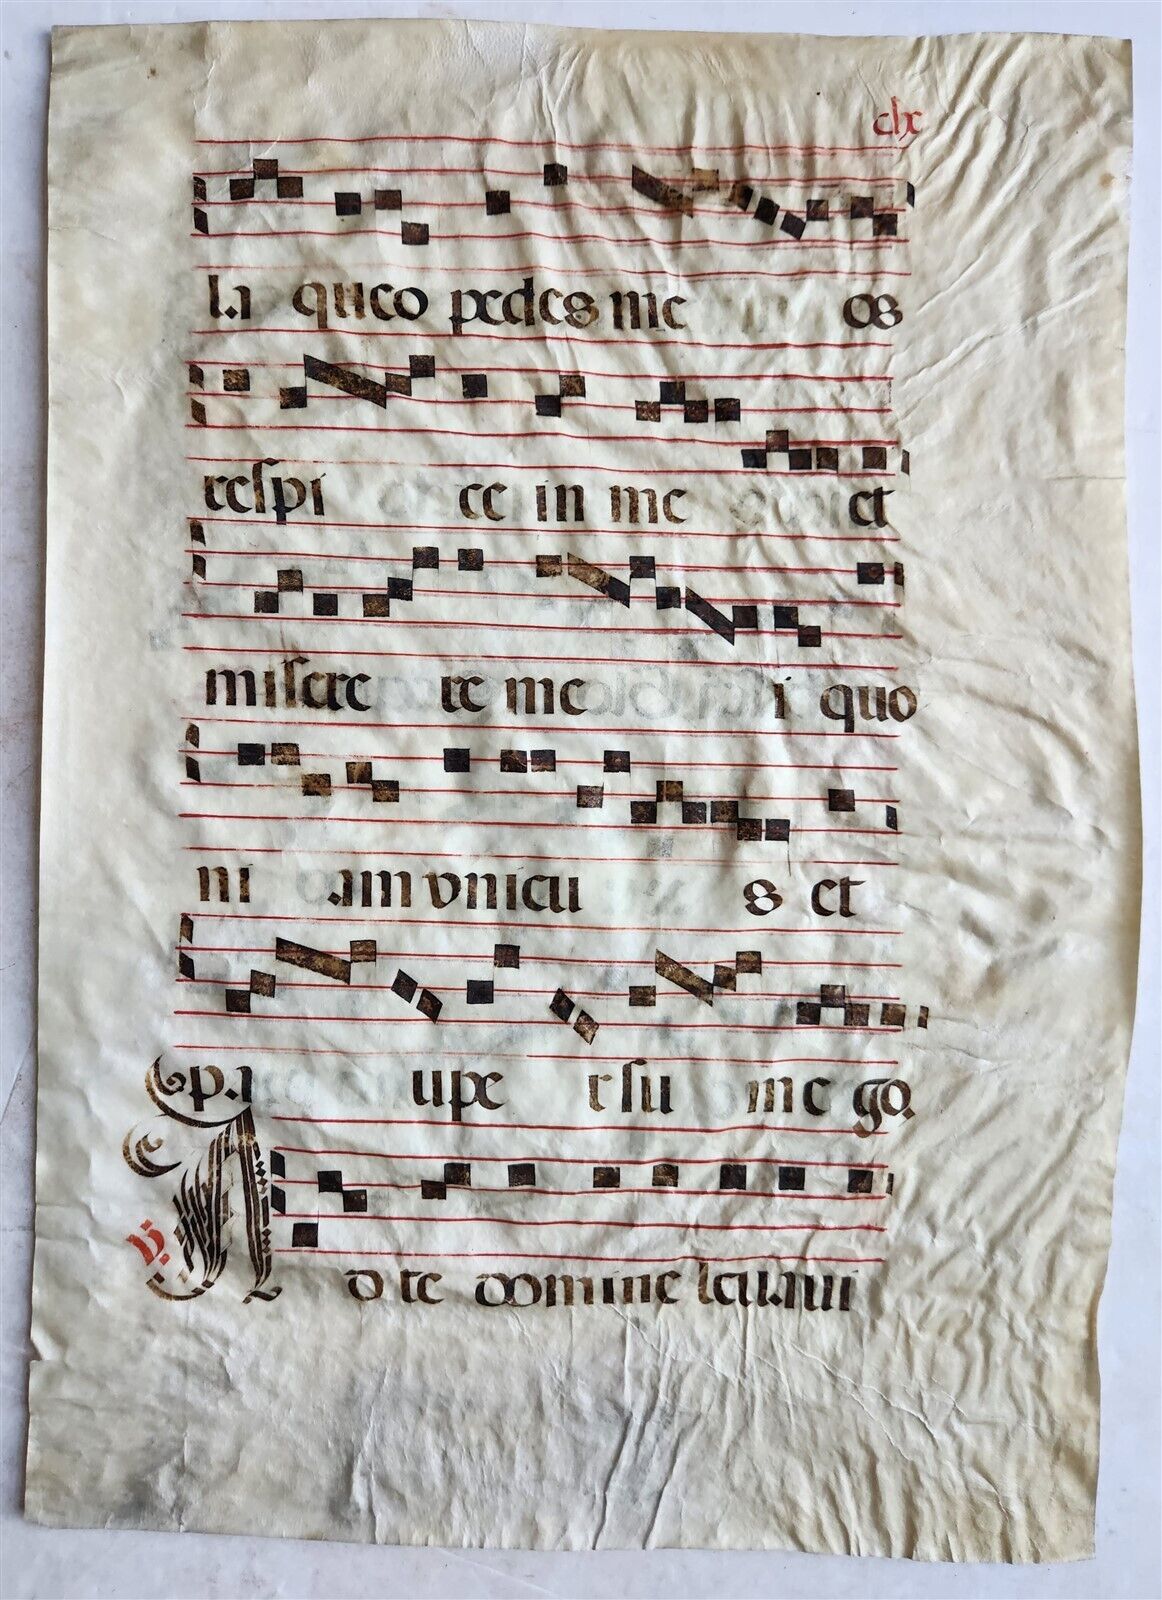 clx
la queo pedes me os
respi ce in me et
misere re me i quo
ni am vnicu s et
pa upe r su m e go.
V. A
d te domine leuaui